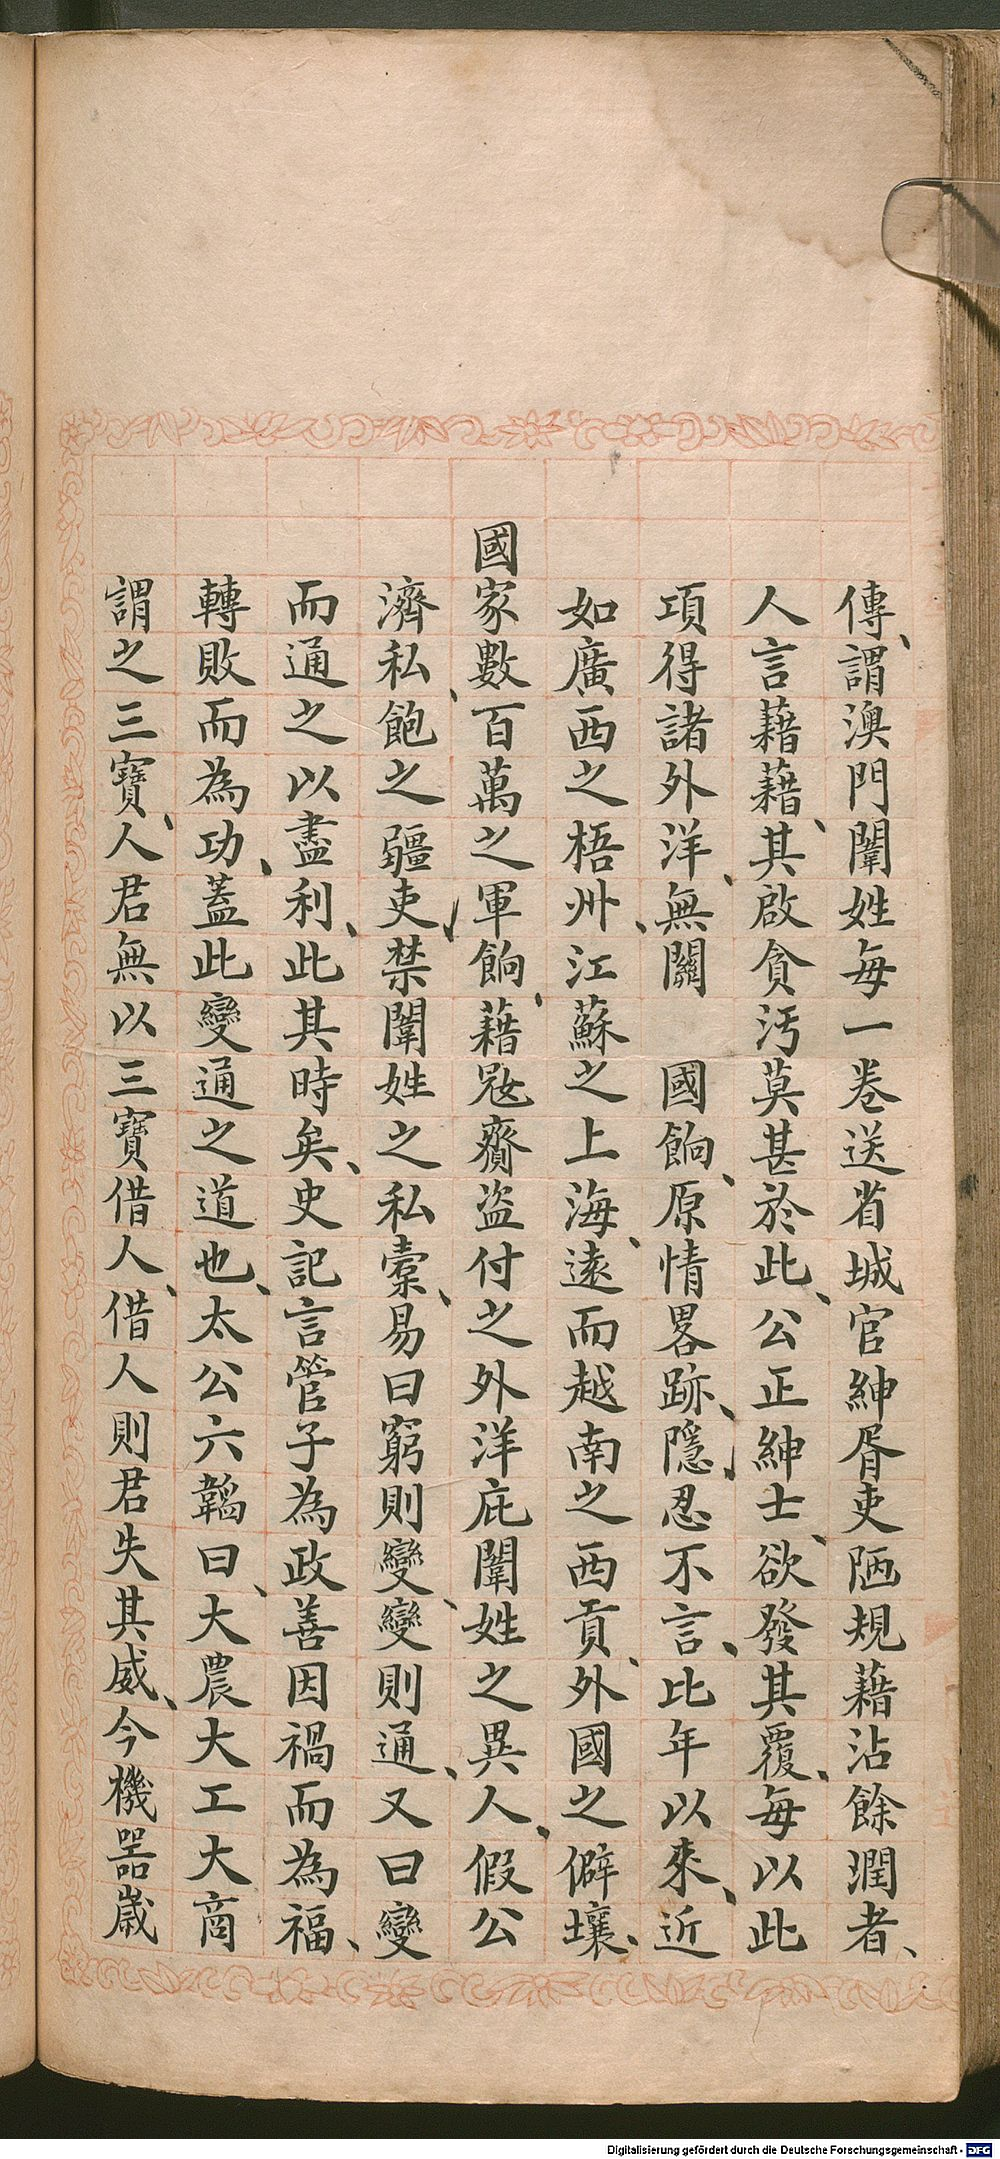 傳、謂澳門闈姓每一卷送省城官紳胥吏陋規藉沾餘潤者、
人言藉藉、其啟貪污莫甚於此、公正紳士、欲發其覆、每以此
項得諸外洋、無關　國餉、原情畧跡、隱忍不言、比年以來、近
如廣西之梧州、江蘇之上海、遠而越南之西貢、外國之僻壤、
國家數百萬之軍餉、藉寇齎盜付之外洋庇闈姓之異人、假公
濟私、飽之疆吏、禁闈姓之私橐、易曰窮則變、變則通、又曰變
而通之以盡利、此其時矣、史記言管子為政善因禍而為福、
轉敗而為功、蓋此變通之道也、太公六韜曰、大農大工大商
謂之三寶、人君無以三寶借人、借人則君失其威、今機器歲
Digitalisierung gefördert durch die Deutsche Forschungsgemeinschaft - DFG